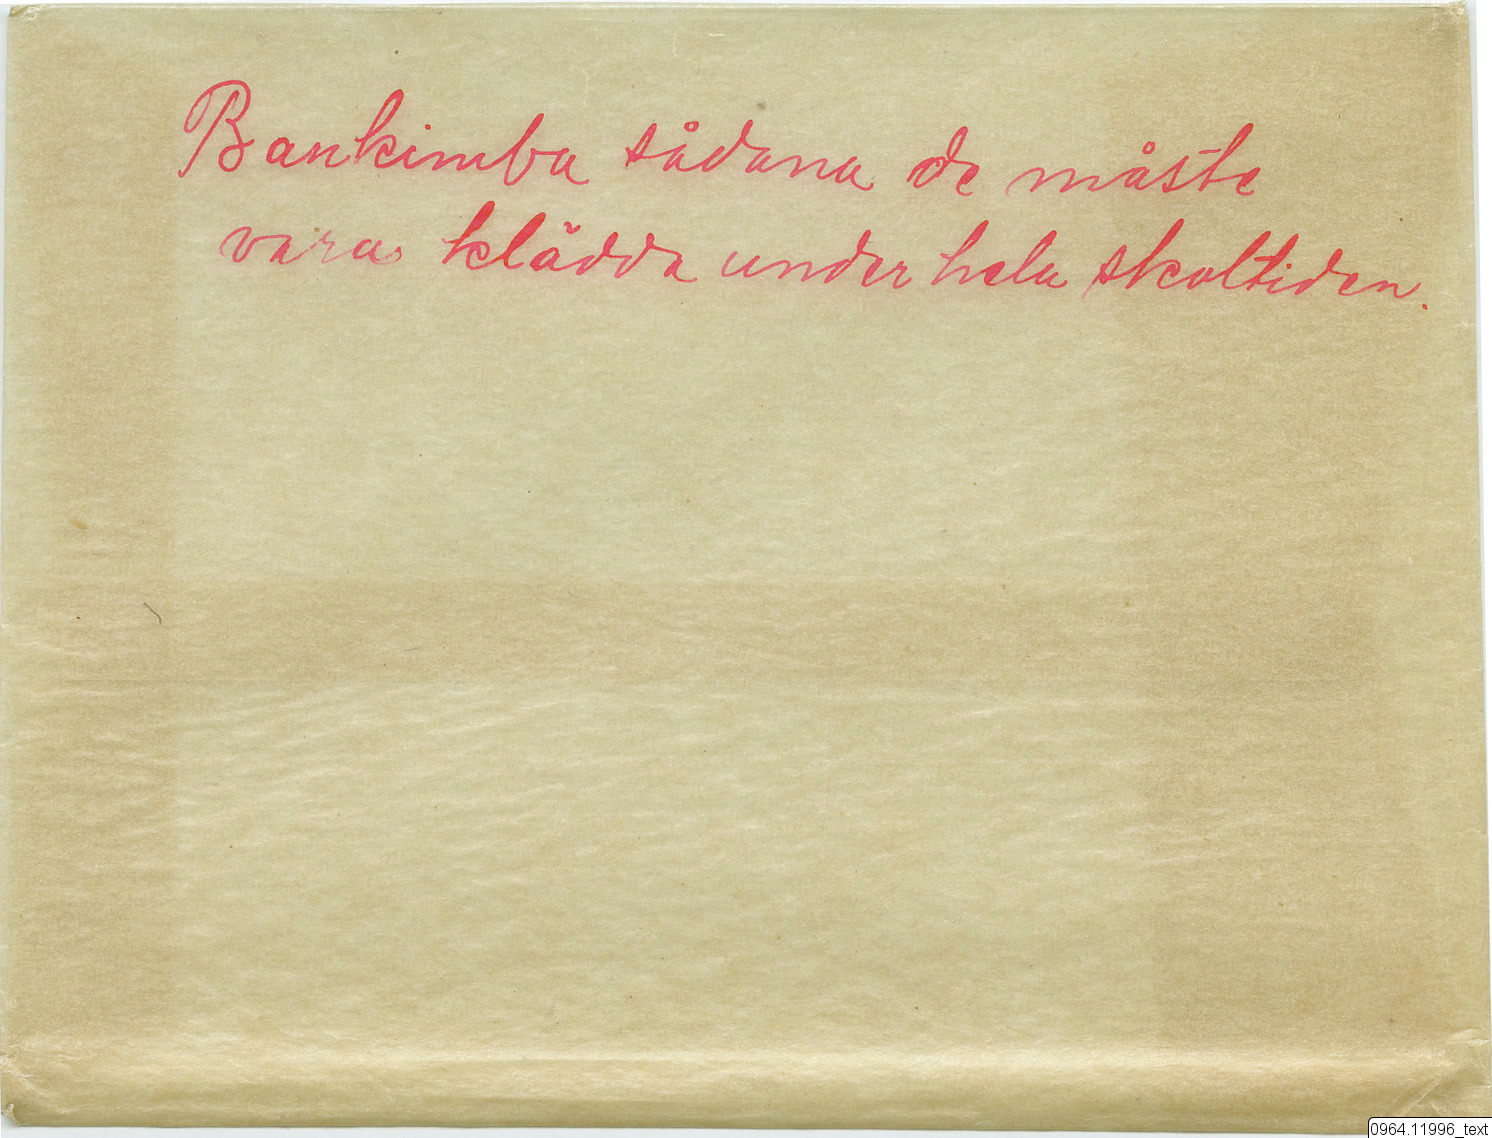 Bankimba sådana de måste
vara klädda under hela skoltiden.
0964.11996_text